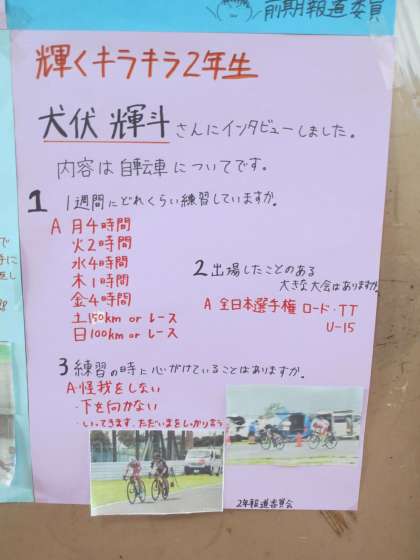 前期報道委員
輝くキラキラ2年生
犬伏 輝斗さんにインタビューしました。
内容は自転車についてです。
1 1週間にどれくらい練習していますか。
A 月4時間
火2時間
水4時間
木1時間
金4時間
土150km or レース
日100km or レース
2 出場したことのある
大きな大会はありますか
A 全日本選手権 ロード・TT
U-15
3 練習の時に心がけていることはありますか。
A・怪我をしない
・下を向かない
・いってきます、ただいまをしっかり言う
2年報道委員会